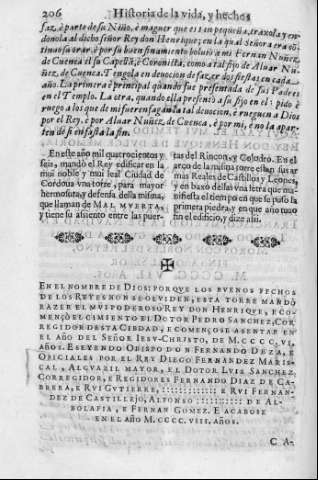 206 Historia de la vida, y hechos
saz, è parte de su Niño, è maguer que està en pequeña, traxola y en
donola al dicho señor Rey don Henrique; en la qual señora era cō
tino su orar, è por su buen finamiento bolviò a mi Fernan Nuñez,
de Cuenca il su Capellã, è Coronista, como a tal fijo de Aluar Nu-
ñez, de Cuenca. Tengola en devocion de fazer dos fiestas en cada
año. La primera è principal quando fue presentada de sus Padres
en el Templo. La otra, quando ella presentò a su fijo en el: pido è
ruego a los que de mi fueren fagan la tal devocion, è rueguen a Dios
por el Rey, è por Aluar Nuñez, de Cuenca, è por mi, è no la apar-
ten de si en fasta la fin.
En este año mil quatrocientos y
seis, mandò el Rey edificar en la
mui noble y mui leal Ciudad de
Cordoua vna torre, para mayor
hermosura, y defensa della misma,
que llaman de MAL MVERTA,
y tiene su asiento entre las puer-
tas del Rincon, y Colodro. En el
arco de la misma torre estàn sus ar-
mas Reales de Castillos y Leones,
y en baxo dellas vna letra que ma-
nifiesta el tiempo en que se puso la
primera piedra, y en que año tuuo
fin el edificio, y dize assi.
EN EL NOMBRE DE DIOS: PORQUE LOS BVENOS FECHOS
DE LOS REYES NON SE OLVIDEN, ESTA TORRE MANDÒ
FAZER EL MUI PODEROSO REY DON HENRIQUE, E CO-
MENÇÒ EL CIMIENTO EL DOCTOR PEDRO SANCHEZ, COR-
REGIDOR DESTA CIBDAD, E COMENÇOSE A SENTAR EN
EL AÑO DEL SEÑOR IESV-CHRISTO, DE M.CCCC.VI.
AÑOS. E SEYENDO OBISPO DON FERNANDO DEZA, E
OFICIALES POR EL REY DIEGO FERNANDEZ MARIS-
CAL, ALGVAZIL MAYOR, EL DOTOR LVIS SANCHEZ,
CORREGIDOR, E REGIDORES FERNANDO DIAZ DE CA-
BRERA, E RVI GVTIERRE, :::::::::::: E RVI FERNAN-
DEZ DE CASTILLEJO, ALFONSO :::::::::::: DE AL-
BOLAFIA, E FERNAN GOMEZ. E ACABOSE
EN EL AÑO M.CCCC.VIII. AÑOS.
C A-